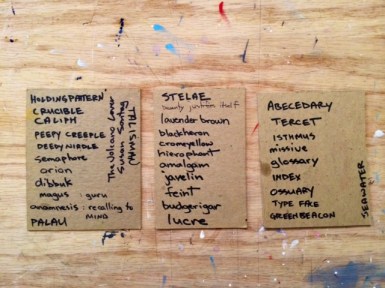 HOLDING PATTERN
CRUCIBLE
CALIPH
PEEPY CREEPLE
DEEDY NIRDLE
semaphore
orion
dibbuk
magus : guru
anamnesis : recalling to
MIND
PALAU
The Volcano Lover
Susan Sontag
TALISMAN
STELAE
itself
lavender brown
black heron
crome yellow
hierophant
amalgam
javelin
feint
budgerigar
lucre
ABECEDARY
TERCET
ISTHMUS
missive
glossary
INDEX
OSSUARY
TYPE FAKE
GREEN BEACON
SEAWATER